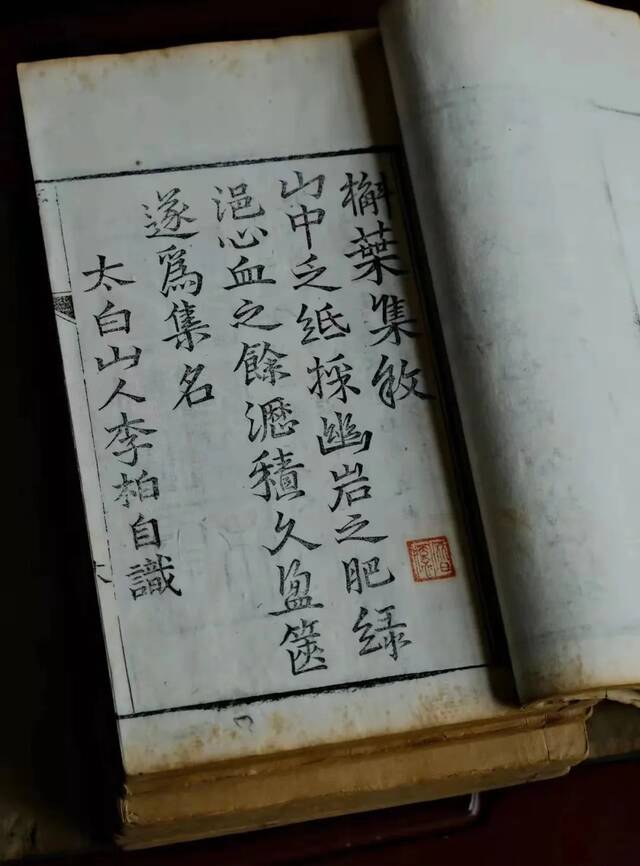 槲葉集敘
山中乏紙採幽岩之肥綠
浥心血之餘瀝積久盈篋
遂爲集名
太白山人李柏自識